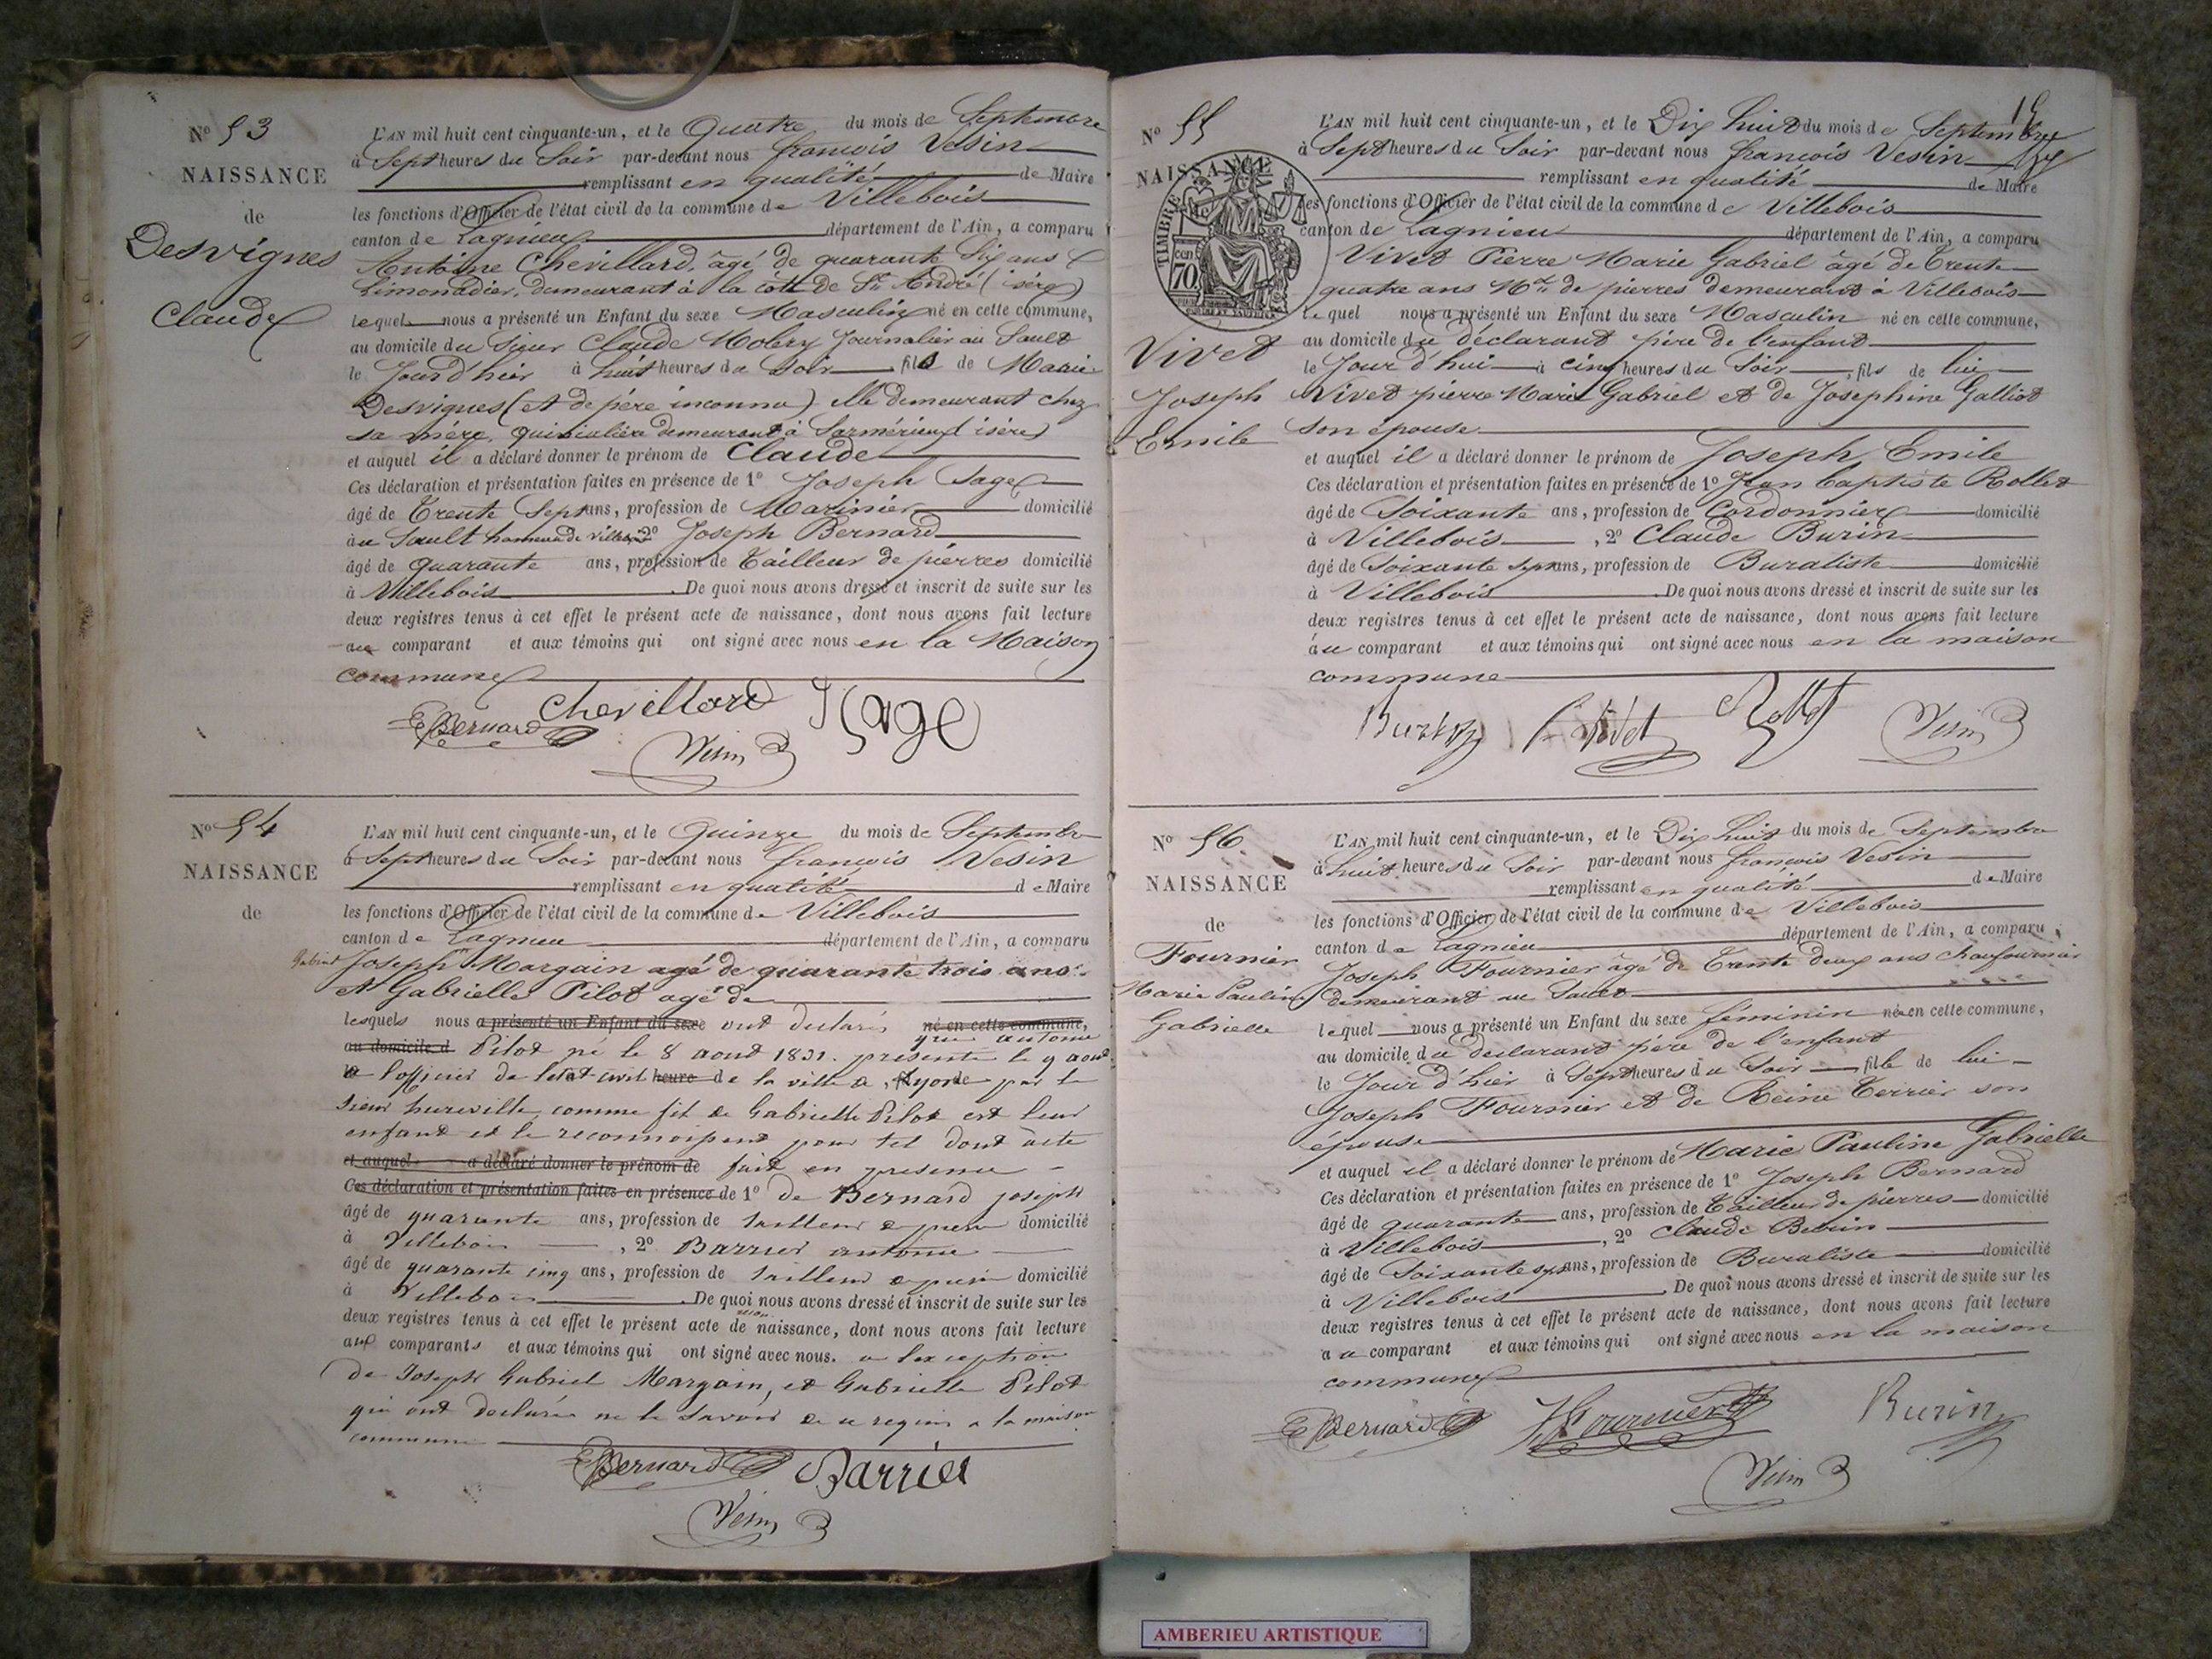 N° 53
NAISSANCE
de
Desvignes
Claude
L'AN mil huit cent cinquante-un, et le Quatre du mois de Septembre
à Sept heures du Soir par-devant nous françois Vesin
remplissant en qualité de Maire
les fonctions d'Officier de l'état civil de la commune de Villebois
canton de Lagnieu département de l'Ain, a comparu
Antoine Chevillard, âgé de quarante Six ans
Limonadier, demeurant à la côte de St André (isère)
lequel nous a présenté un Enfant du sexe Masculin né en cette commune,
au domicile du Sieur Claude Mobry Journalier au Sault
le Jour d'hier à huit heures du Soir fils de Marie
Desvignes (et de père inconnu) elle demeurant chez
sa mère, demeurant à Sermérieu (isère)
et auquel il a déclaré donner le prénom de Claude
Ces déclaration et présentation faites en présence de 1° Joseph Sage
âgé de Trente Sept ans, profession de Marinier domicilié
au Sault hameau de Villebois 2° Joseph Bernard
âgé de quarante ans, profession de Tailleur de pierres domicilié
à Villebois De quoi nous avons dressé et inscrit de suite sur les
deux registres tenus à cet effet le présent acte de naissance, dont nous avons fait lecture
au comparant et aux témoins qui ont signé avec nous en la Maison
commune
Bernard Chevillard Sage
Vesin
N° 54
NAISSANCE
de
L'AN mil huit cent cinquante-un, et le Quinze du mois de Septembre
à Sept heures du Soir par-devant nous françois Vesin
remplissant en qualité de Maire
les fonctions d'Officier de l'état civil de la commune de Villebois
canton de Lagnieu département de l'Ain, a comparu
Gabriel Joseph Margain agé de quarante trois ans
et Gabrielle Pilot agé de
lesquels nous a présenté un Enfant du sexe ont declaré né en cette commune,
que antoine
au domicile d Pilot né le 8 aout 1831. présenté le 9 aout
a l'officier de l'etat-civil heure de la ville de Lyon par le
Sieur hureville, comme fil de Gabrielle Pilot est leur
enfant et le reconnoissent pour tel dont acte
et auquel a déclaré donner le prénom de fait en presence
Ces déclaration et présentation faites en présence de 1° de Bernard joseph
âgé de quarante ans, profession de tailleur de pierre domicilié
à Villebois, 2° Barrier antoine
âgé de quarante cinq ans, profession de tailleur de pierre domicilié
à Villebois De quoi nous avons dressé et inscrit de suite sur les
deux registres tenus à cet effet le présent acte de naissance, dont nous avons fait lecture
aux comparants et aux témoins qui ont signé avec nous. a l'exception
de Joseph Gabriel Margain, et Gabrielle Pilot
qui ont declaré ne le savoir de ce requis a la maison
commune
Bernard Barrier
Vesin
15
N° 55
NAISSANCE
de
TIMBRE
70
Vivet
Joseph
Emile
L'AN mil huit cent cinquante-un, et le Dix huit du mois de Septembre
à Sept heures du Soir par-devant nous françois Vesin
remplissant en qualité de Maire
les fonctions d'Officier de l'état civil de la commune de Villebois
canton de Lagnieu département de l'Ain, a comparu
Vivet Pierre Marie Gabriel âgé de Trente
quatre ans Md de pierres demeurant à Villebois
lequel nous a présenté un Enfant du sexe Masculin né en cette commune,
au domicile du déclarant père de l'enfant
le Jour d'hui à cinq heures du Soir, fils de lui
Vivet pierre Marie Gabriel et de Josephine Galliot
son épouse
et auquel il a déclaré donner le prénom de Joseph Emile
Ces déclaration et présentation faites en présence de 1° Jean baptiste Rollet
âgé de Soixante ans, profession de Cordonnier domicilié
à Villebois, 2° Claude Burin
âgé de Soixante sept ans, profession de Buraliste domicilié
à Villebois De quoi nous avons dressé et inscrit de suite sur les
deux registres tenus à cet effet le présent acte de naissance, dont nous avons fait lecture
au comparant et aux témoins qui ont signé avec nous en la maison
commune
Burin Vivet Rollet Vesin
N° 56
NAISSANCE
de
Fournier
Marie Pauline
Gabrielle
L'AN mil huit cent cinquante-un, et le Dix huit du mois de Septembre
à huit heures du Soir par-devant nous françois Vesin
remplissant en qualité de Maire
les fonctions d'Officier de l'état civil de la commune de Villebois
canton de Lagnieu département de l'Ain, a comparu
Joseph Fournier âgé de Trente deux ans chaufournier
demeurant au Sault
lequel nous a présenté un Enfant du sexe féminin née en cette commune,
au domicile du déclarant père de l'enfant
le Jour d'hier à Sept heures du Soir fille de lui
Joseph Fournier et de Reine Terrier son
épouse
et auquel il a déclaré donner le prénom de Marie Pauline Gabrielle
Ces déclaration et présentation faites en présence de 1° Joseph Bernard
âgé de quarante ans, profession de Tailleur de pierres domicilié
à Villebois, 2° Claude Burin
âgé de Soixante sept ans, profession de Buraliste domicilié
à Villebois De quoi nous avons dressé et inscrit de suite sur les
deux registres tenus à cet effet le présent acte de naissance, dont nous avons fait lecture
au comparant et aux témoins qui ont signé avec nous en la maison
commune
Bernard Fournier Burin
Vesin
AMBERIEU ARTISTIQUE